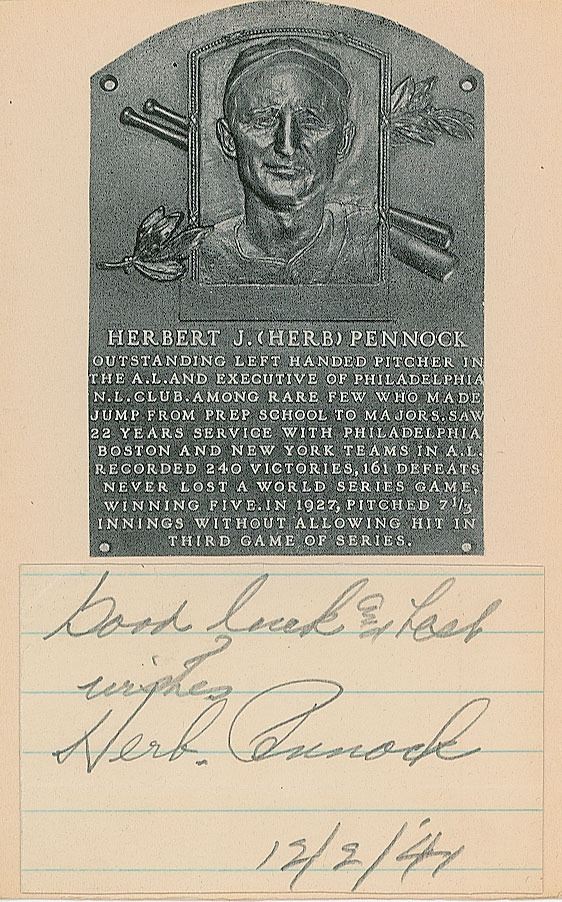 HERBERT J. (HERB) PENNOCK
OUTSTANDING LEFT HANDED PITCHER IN
THE A.L. AND EXECUTIVE OF PHILADELPHIA
N.L. CLUB. AMONG RARE FEW WHO MADE
JUMP FROM PREP SCHOOL TO MAJORS. SAW
22 YEARS SERVICE WITH PHILADELPHIA
BOSTON AND NEW YORK TEAMS IN A.L.
RECORDED 240 VICTORIES, 161 DEFEATS
NEVER LOST A WORLD SERIES GAME,
WINNING FIVE. IN 1927, PITCHED 7 1/3
INNINGS WITHOUT ALLOWING HIT IN
THIRD GAME OF SERIES.
Good luck & best
wishes
Herb. Pennock
12/2/'44